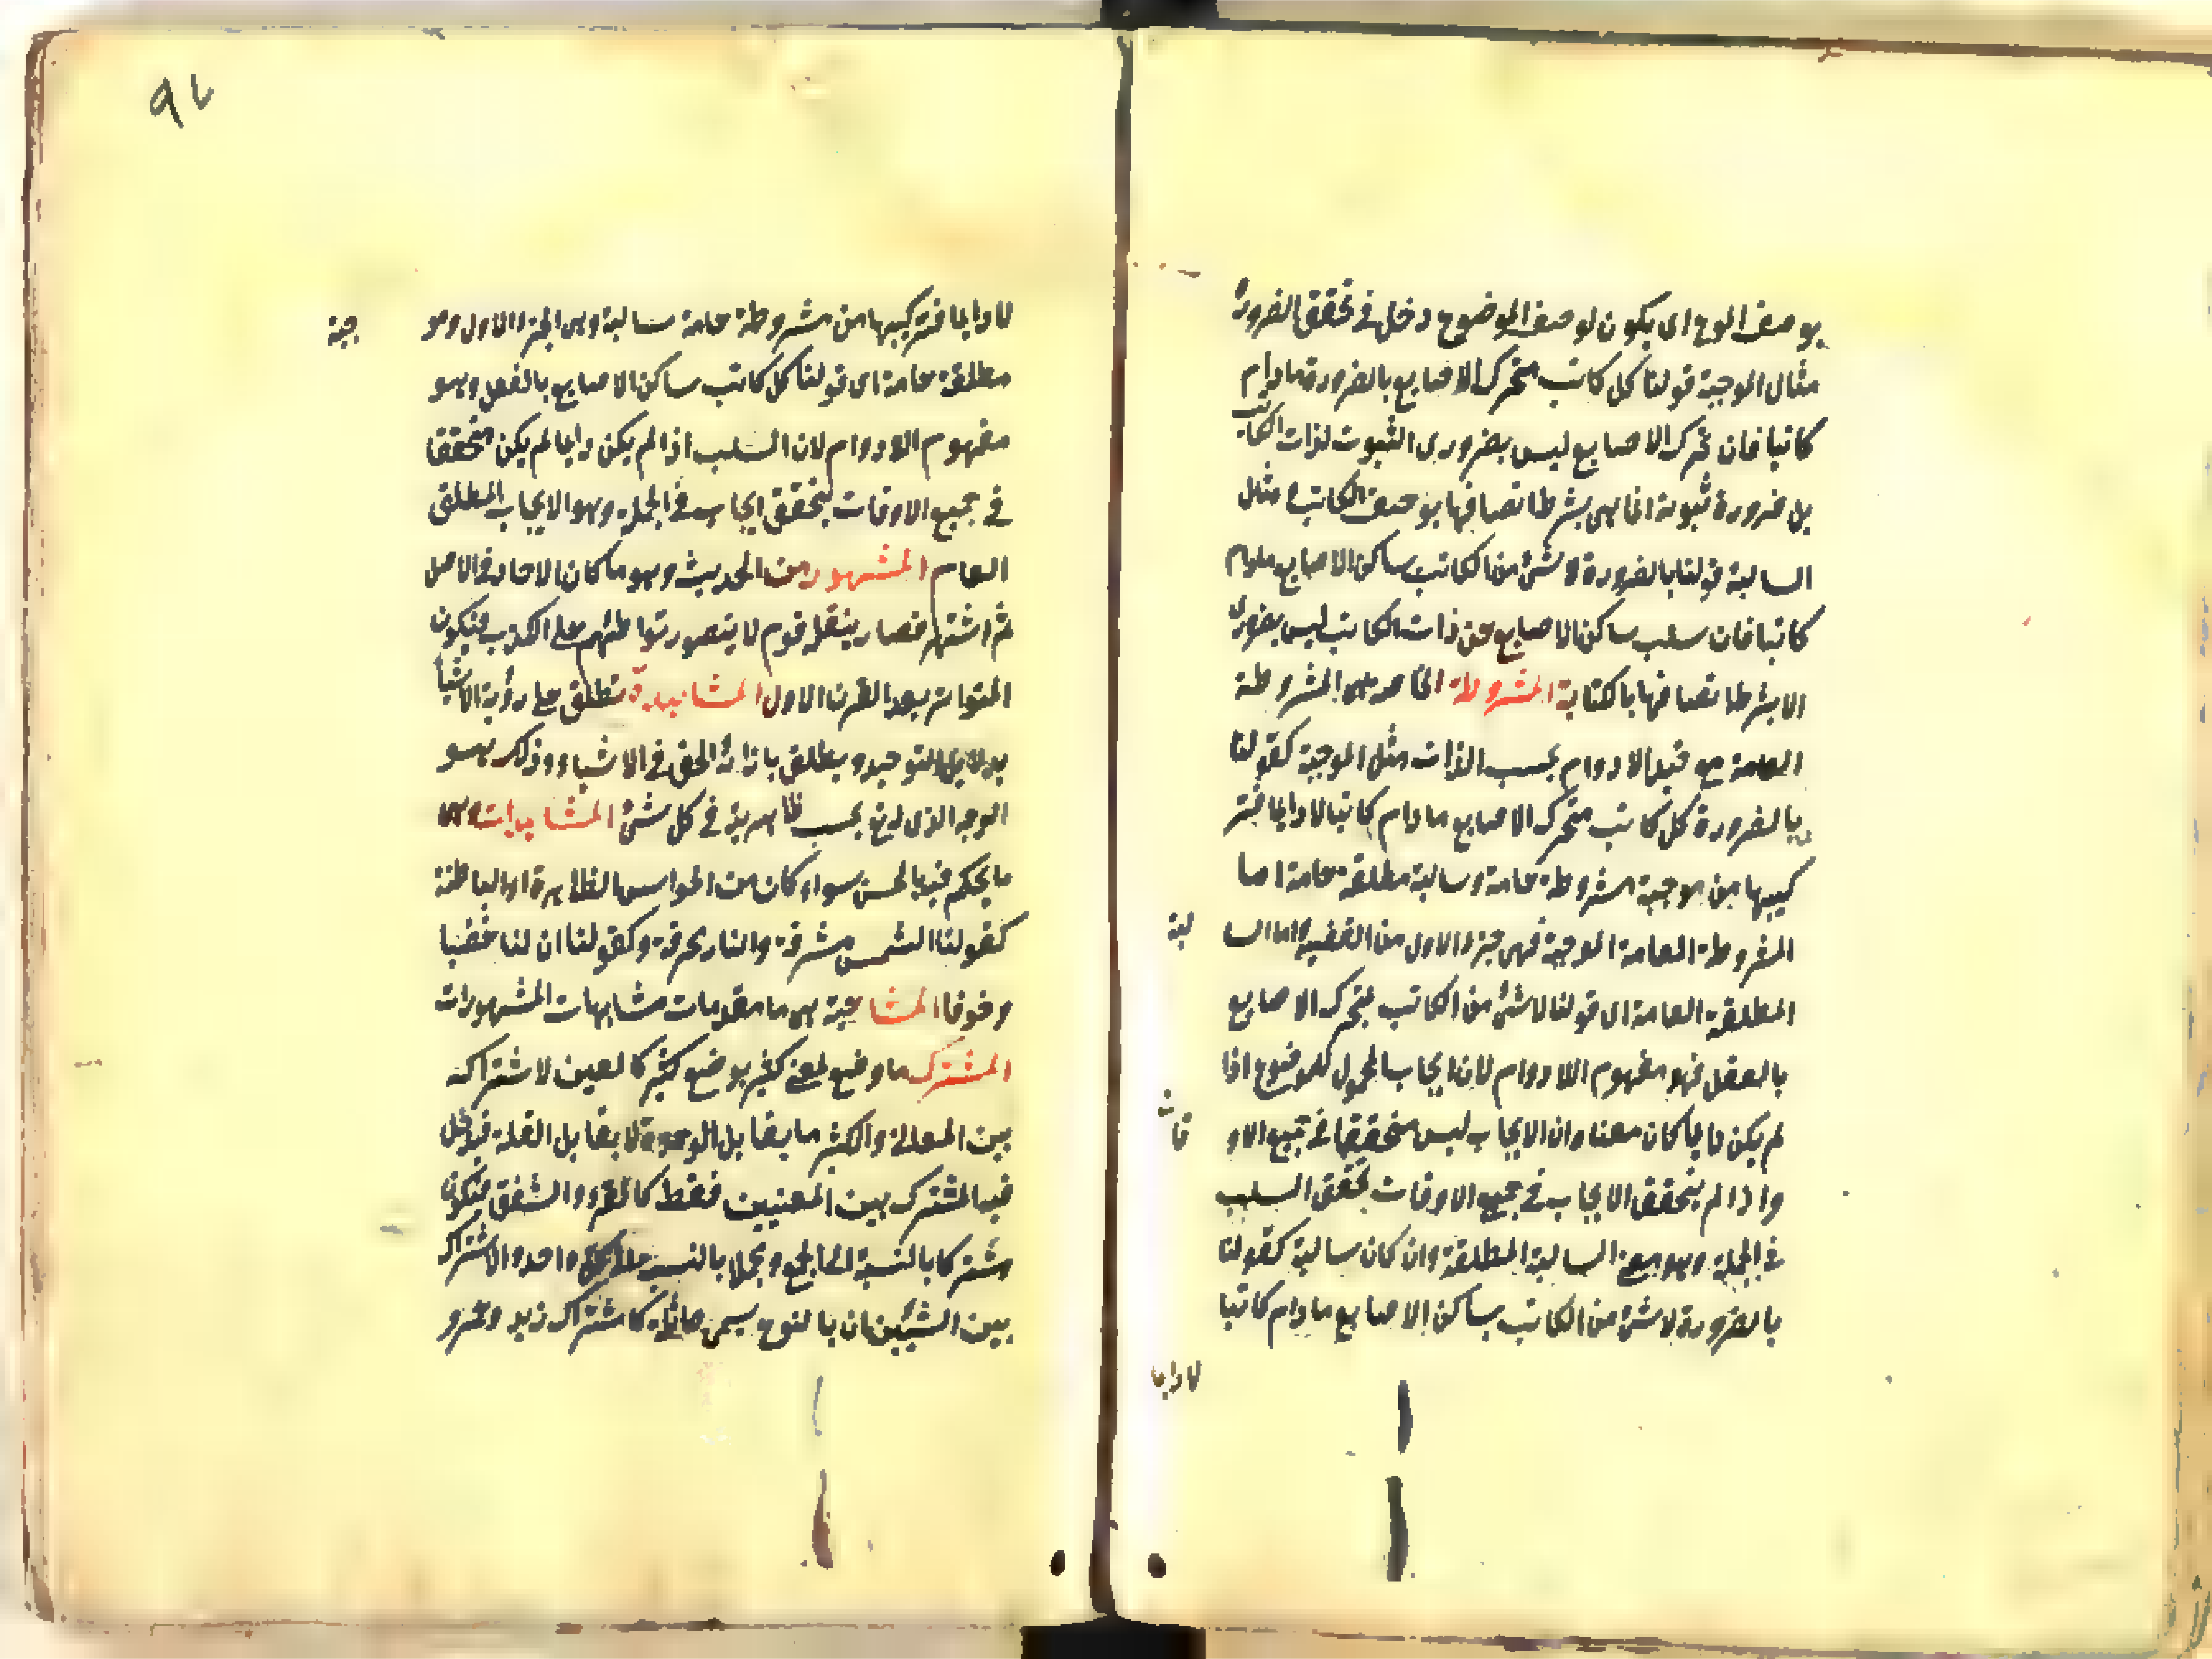 بوصف الموح اى يكون لوصف الموضوح دخل فى تحقق الضرورة
مثال الموجبة قولنا كل كاتب متحرك الاصابع بالضرورة مادام
كاتبا فان تحرك الاصابع ليس بضرورى الثبوت لذات الكاتب
بل ضرورة ثبوته انما هى بشرط اتصافها بوصف الكاتب مثال
السالبة قولنا بالضرورة لا شئ من الكاتب ساكن الاصابع مادام
كاتبا فان سلب ساكن الاصابع عن ذات الكاتب ليس بضرورى
الا بشرط اتصافها بالكتابة المشروطة الخاصة هى المشروطة
العامة مع قيد الادوام بحسب الذات مثل الموجبة كقولنا
بالضرورة كل كاتب متحرك الاصابع مادام كاتبا لا دايما فتر
كيبها من موجبة مشروطة عامة وسالبة مطلقة عامة اما
المشروطة العامة الموجبة فهى جزء الاول من القضية واما السا لبة
المطلقة العامة اى قولنا لا شئ من الكاتب بمتحرك الاصابع
بالفعل فهو مفهوم اللادوام لان ايجاب المحمول للموضوع اذا
لم يكن دايما كان معناه ان الايجاب ليس متحققا فى جميع الاو قات
واذا لم يتحقق الايجاب فى جميع الاوقات تحقق السلب
فى الجملة وهو معنى السالبة المطلقة وان كان سالبة كقولنا
بالضرورة لا شئ من الكاتب بساكن الاصابع مادام كاتبا
لا دايما
٩٧
لا دايما فتركيبها من مشروطة عامة سالبة وهى الجزء الاول ومو جبة
مطلقة عامة اى قولنا كل كاتب ساكن الاصابع بالفعل وهو
مفهوم اللادوام لان السلب اذا لم يكن دايما لم يكن متحققا
فى جميع الاوقات يتحقق ايجابه فى الجملة وهو الايجاب المطلق
العام المشهور من الحديث وهو ما كان الاحاد فى الاصل
ثم اشتهر فصار ينقله قوم لا يتصور تواطئهم على الكذب فيكون
المتواتر بعد القرن الاول المشاهدة تطلق على رؤية الاشيا
بدلايل التوحيد ويطلق بازائه الحق فى الاشياء وذلك هو
الوجه الذى له تع بحسب ظاهريته فى كل شئ المشاهدات وهى
ما يحكم فيه بالحس سواء كان من الحواس الظاهرة او الباطنة
كقولنا الشمس مشرقة والنار محرقة وكقولنا ان لنا غضبا
وخوفا المشاغبة هى ما مقدمات مشابهات المشهورات
المشترك ما وضع لمعنى كثير بوضع كثير كالعين لاشتراكه
بين المعانى والكثير ما يقابل الوحدة لا يقابل القلة فيدخل
فيه المشترك بين المعنيين فقط كالقرء والشفق فيكون
مشتركا بالنسبة الى الجميع ومجملا بالنسبة الى كل واحد والاشتراك
بين الشيئين ان بالنوع يسمى مماثلة كاشتراك زيد وعمرو